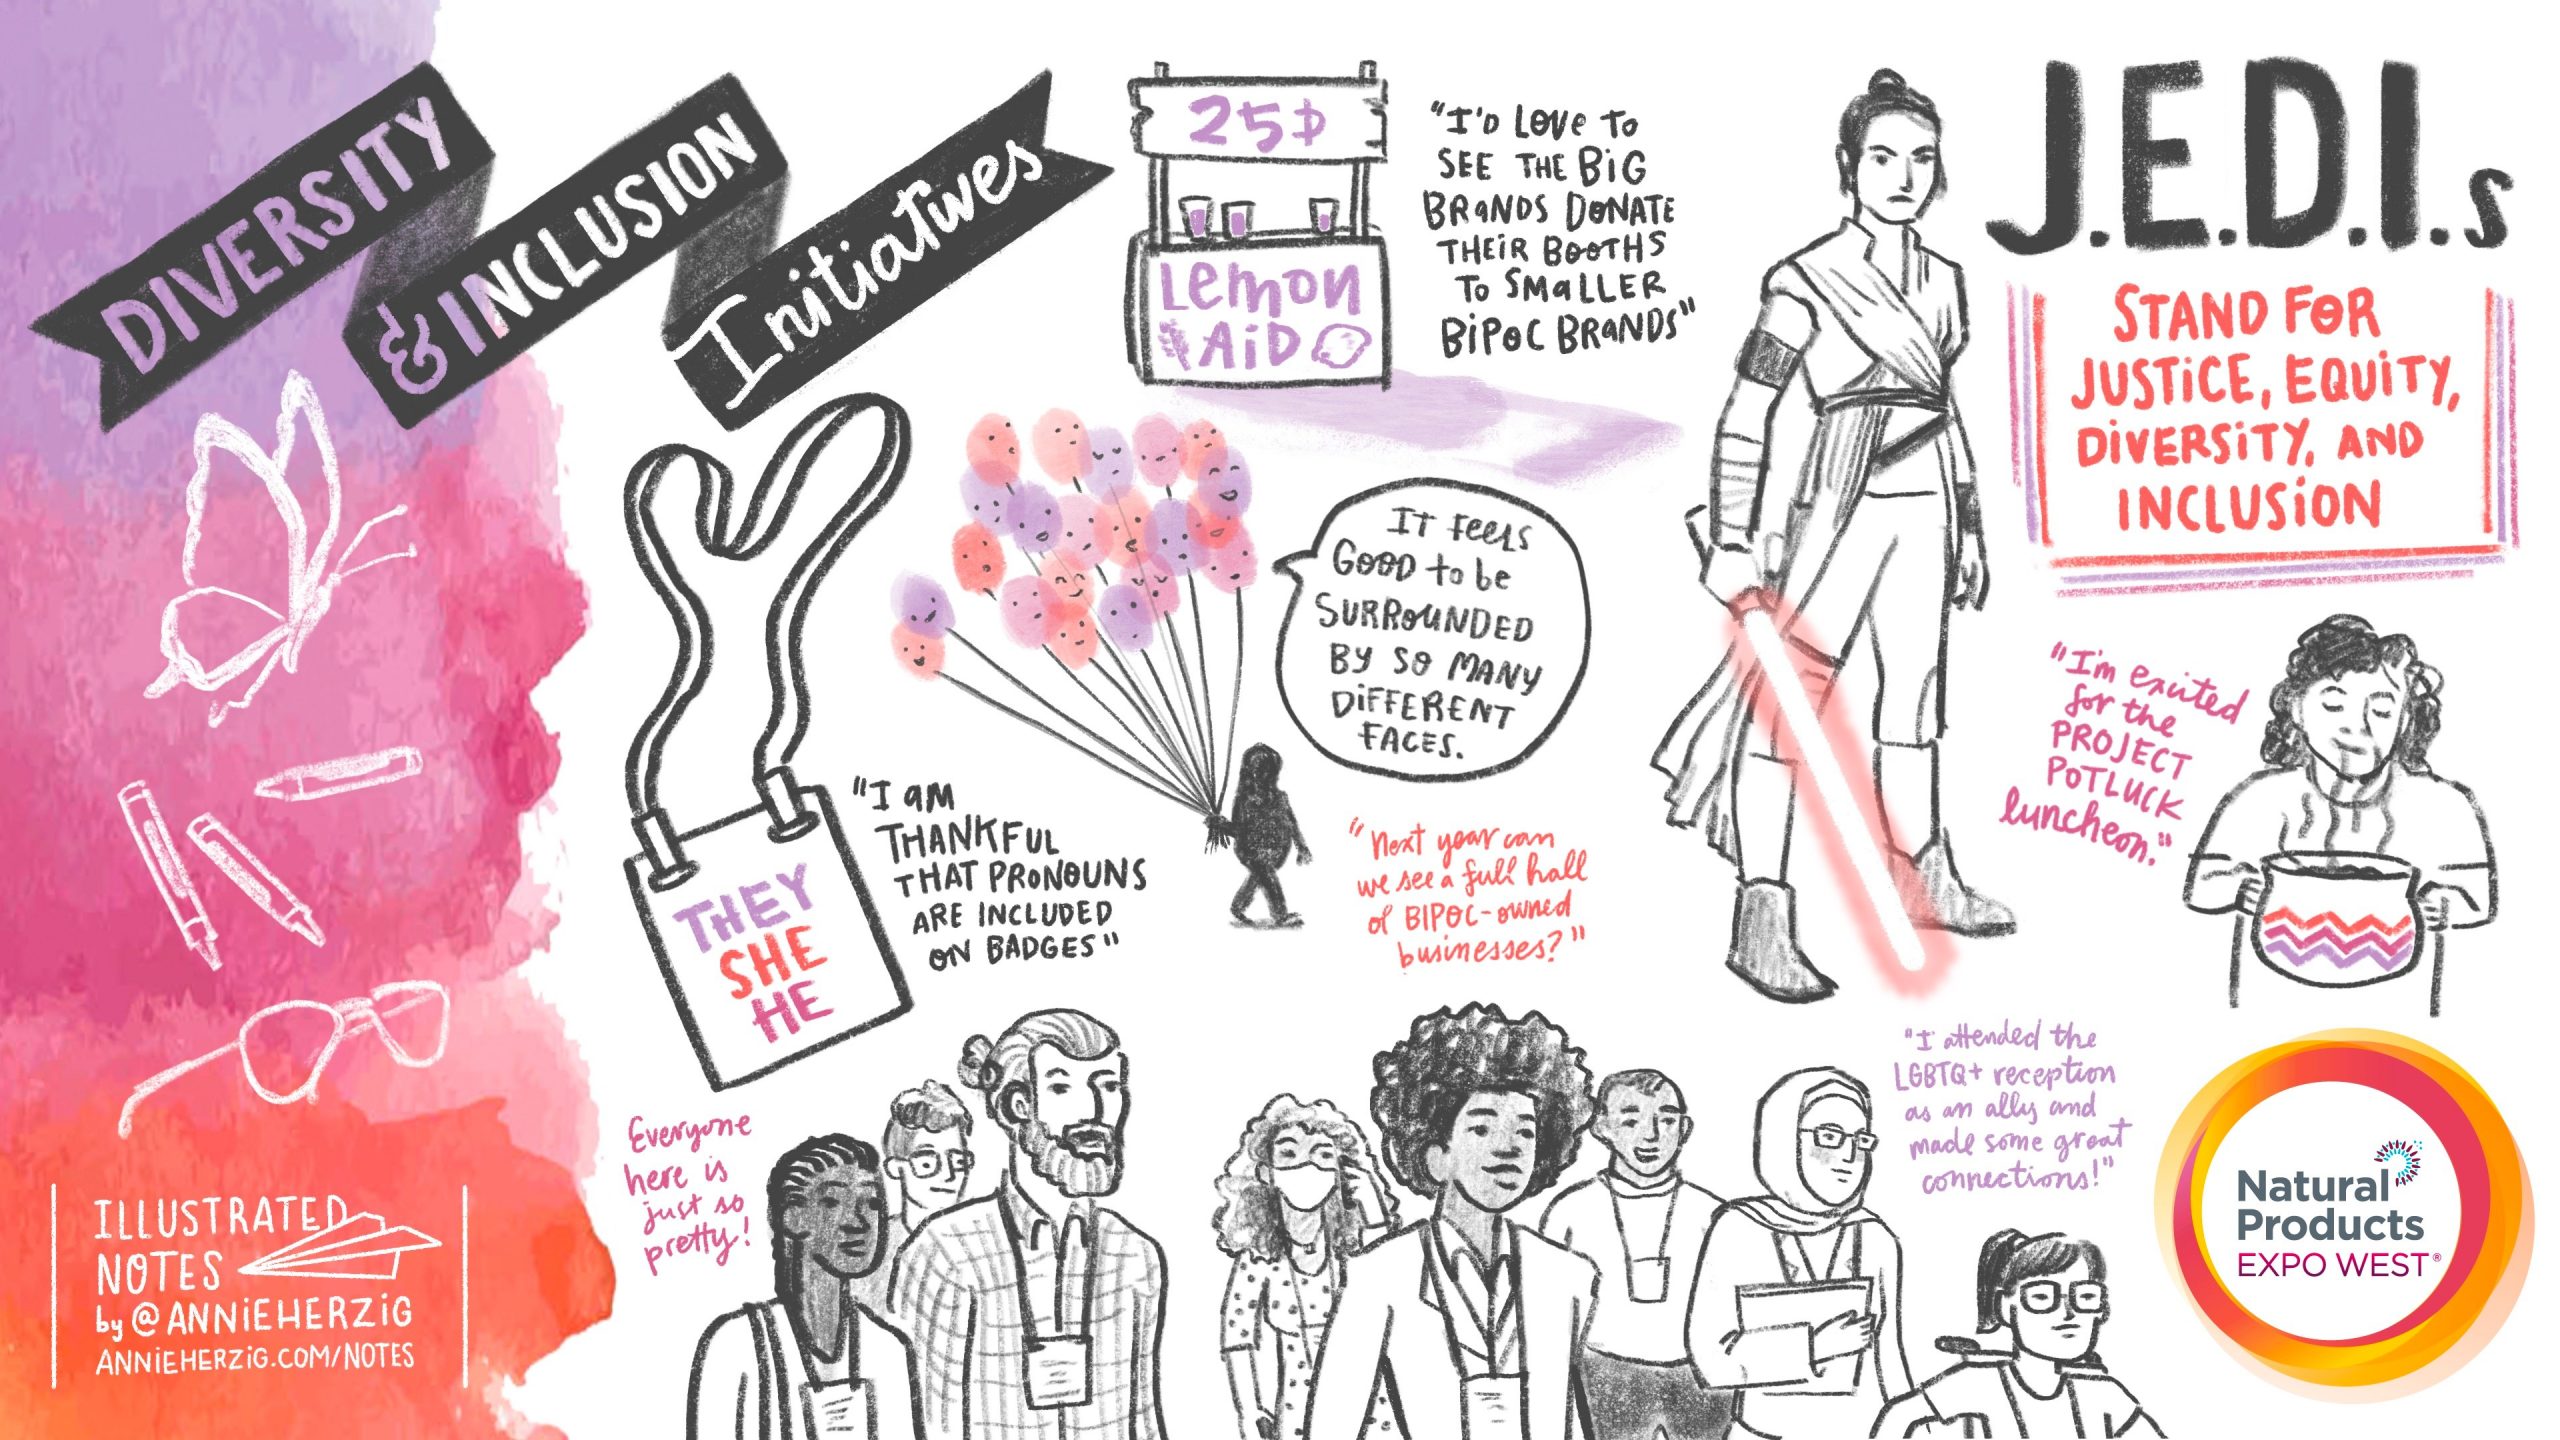 DIVERSITY
& INCLUSION
Initiatives
25¢
Lemon
AiD
"I'D LOVE To
SEE THE BiG
BRaNDS DONATE
THEiR BOOTHS
To SMaLLER
BiPoC BRANDS"
J.E.D.I.s
STAND FOR
JUSTiCE, EQUiTY,
DiVERSiTY, AND
INCLUSiON
IT feels
GOOD to be
SURROUNDED
BY SO MANY
DiFFERENT
FACES.
"I'm excited
for the
PROJECT
POTLUCK
luncheon."
"I aM
THANKFUL
THAT PRONOUNS
ARE INCLUDED
ON BADGES"
THEY
SHE
HE
"Next year can
we see a full hall
of BIPOC-owned
businesses?"
Everyone
here is
just so
pretty!
"I attended the
LGBTQ+ reception
as an ally and
made some great
connections!"
ILLUSTRATED
NOTES
by @ANNiEHERZiG
ANNiEHERZiG.COM/NOTES
Natural
Products
EXPO WEST®